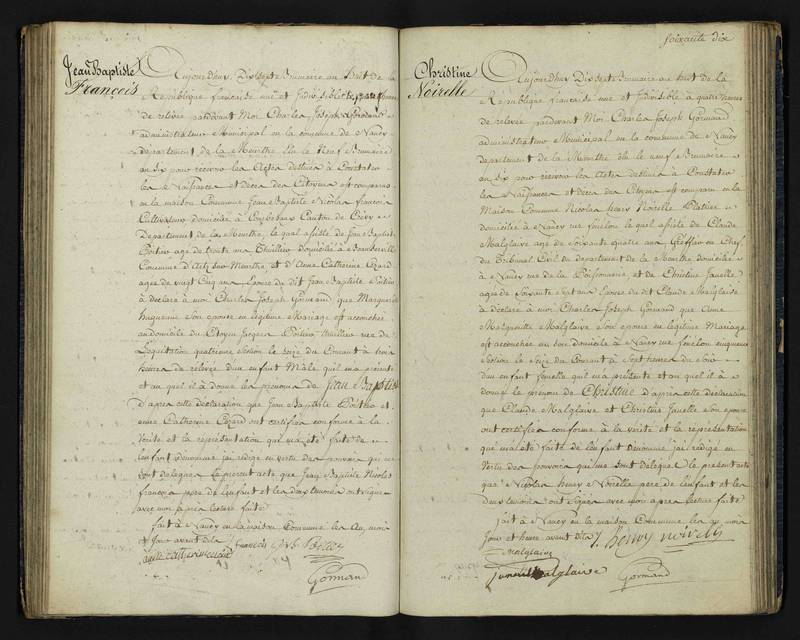 Jean Baptiste
François
Aujourdhuy Dixsept Brumaire an huit de la
République française une et Indivisible
de relevée pardevant Moi Charles Joseph Gormand
administrateur Municipal en la commune de Nancy
département de la Meurthe Elu le neuf Brumaire
an Six pour recevoir les Actes destinés à Constater
les Naissances et décès des Citoyens est comparu
en la maison Commune Jean Baptiste Nicolas françois
Cultivateur domicilié à Canton de
Département de la Meurthe, le quel assisté de Jean Baptiste
Poitier agé de trente ans Thuillier domicilié à
Commune d'Art sur Meurthe et d'Anne Catherine Cezard
agée de vingt Cinq ans Epouse du dit Jean Baptiste Poitier
à déclaré à moi Charles Joseph Gormand que Marguerite
huguenin Son epouse en légitime Mariage est accouchée
au domicile du Citoyen Jacques Poitier thuillier rue de
L'equitation quatrieme Section le Seize du Courant à trois
heures de relevée d'un Enfant Mâle qu'il m'a présenté
et au quel il à donné les prénoms de Jean Baptiste
D'après cette déclaration que Jean Baptiste Poitier et
anne Catherine Cezard ont certifiée conforme à la
Vérité et la représentation qui m'a été faite de
l'enfant dénommé j'ai rédigé en vertu des pouvoirs qui me
sont délégués le présent acte que Jean Baptiste Nicolas
françois pere de l'enfant et les deux temoins ont signés
avec moi après lecture faite
fait à Nancy en la maison Commune les an, mois
et Jour avant dits
françois
anne catherine cezard
Gormand
Soixante dix
Christine
Noirelle
Aujourdhuy Dixsept Brumaire an huit de la
République française une et Indivisible à quatre heures
de relevée pardevant Moi Charles Joseph Gormand
administrateur Municipal en la commune de Nancy
département de la Meurthe élu le neuf Brumaire
an Six pour recevoir les Actes destinés à Constater
les Naissances et décès des Citoyens est comparu en la
Maison Commune Nicolas henry Noirelle Platier
domicilié à Nancy rue fénélon le quel assisté de Claude
Malglaive agé de Soixante quatre ans Greffier en Chef
du Tribunal Civil du département de la Meurthe domicilié
à Nancy rue de la Poissonnerie, et de Christine Janelle
agée de Soixante Sept ans Epouse du dit Claude Malglaive
à déclaré à moi Charles Joseph Gormand que Anne
Marguerite Malglaive Son epouse en légitime Mariage
est accouchée en son domicile à Nancy rue fénélon cinquieme
Section le Seize du Courant à Sept heures du Soir
d'un Enfant femelle qu'il m'a présenté et au quel il à
donné le prénom de Christine D'après cette déclaration
que Claude Malglaive et Christine Janelle Son epouse
ont certifiée conforme à la vérité et la représentation
qui m'a été faite de l'enfant dénommé j'ai rédigé en
Vertu des pouvoirs qui me sont délégués le présent acte
que Nicolas henry Noirelle pere de l'enfant et les
deux temoins ont signés avec moi après lecture faite
fait à Nancy en la maison Commune les an, mois
Jour et heure avant dits N. henry noirelle
Malglaive
Malglaive
Gormand